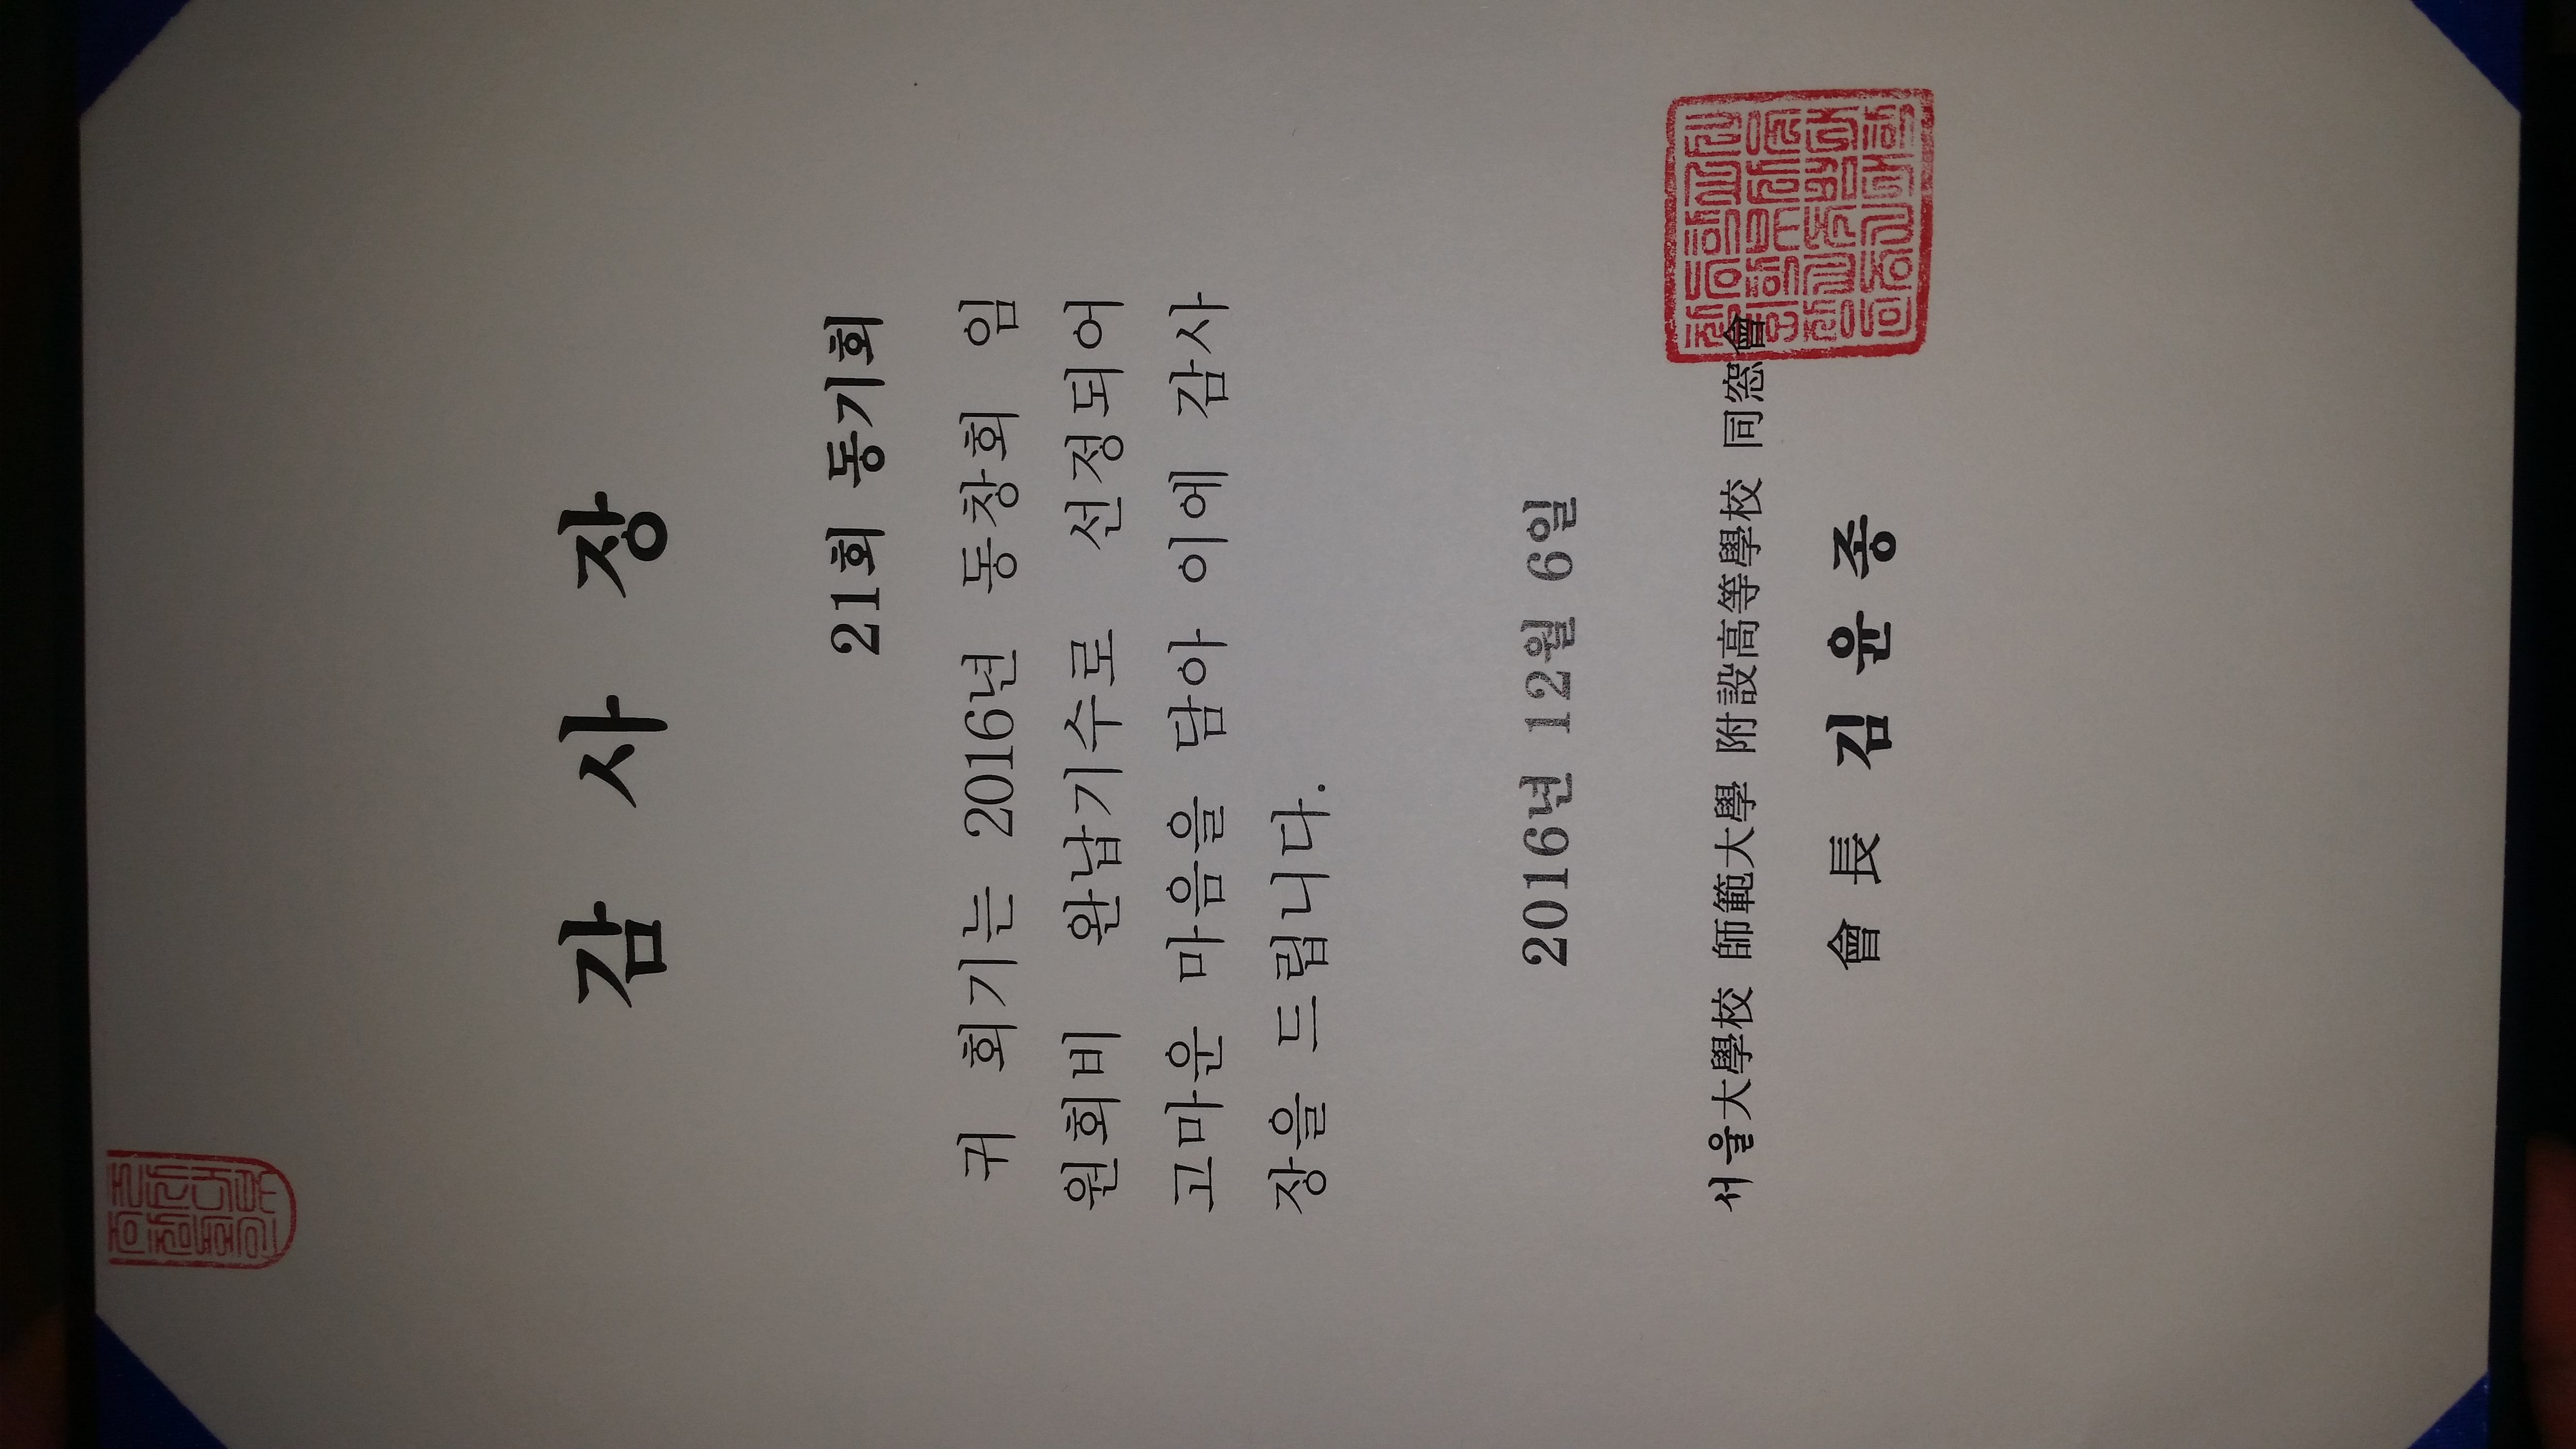 감 사 장
21회 동기회
귀 회기는 2016년 동창회 임
원회비 완납기수로 선정되어
고마운 마음을 담아 이에 감사
장을 드립니다.
2016년 12월 6일
서울大學校 師範大學 附設高等學校 同窓會
會 長 김 윤 종